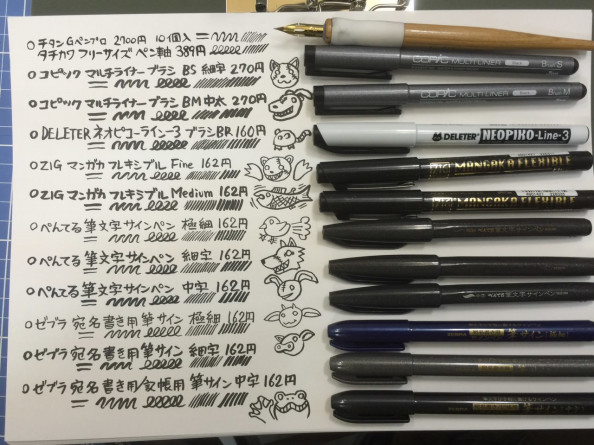 ○チタンGペンプロ 2700円 10個入
タチカワ フリーサイズ ペン軸 389円
○コピック マルチライナー ブラシ BS 細字 270円
○コピック マルチライナー ブラシ BM 中太 270円
○DELETER ネオピコーライン-3 ブラシBR 160円
○ZIG マンガカ フレキシブル Fine 162円
○ZIG マンガカ フレキシブル Medium 162円
○ぺんてる 筆文字サインペン 極細 162円
○ぺんてる 筆文字サインペン 細字 162円
○ぺんてる 筆文字サインペン 中字 162円
○ゼブラ 宛名書き用 筆サイン 極細 162円
○ゼブラ 宛名書き用筆サイン 細字 162円
○ゼブラ 宛名書き用/ 筆サイン 中字 162円
COPIC MULTILINER
COPIC MULTILINER
DELETER NEOPIKO-Line-3
ZIG MANGAKA FLEXIBLE
ZIG MANGAKA FLEXIBLE
筆文字サインペン
筆サイン
筆サイン
筆サイン